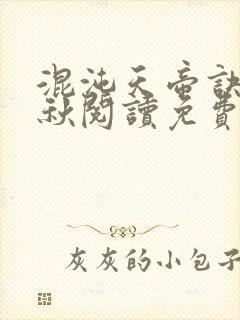 混沌天帝訣
秋閱讀免費
灰灰的小包子